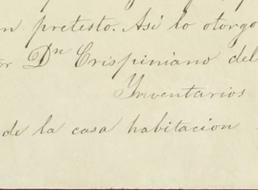 n pretesto. Así lo otorgo
or Dn Crispiniano del
Inventarios
de la casa habitacion